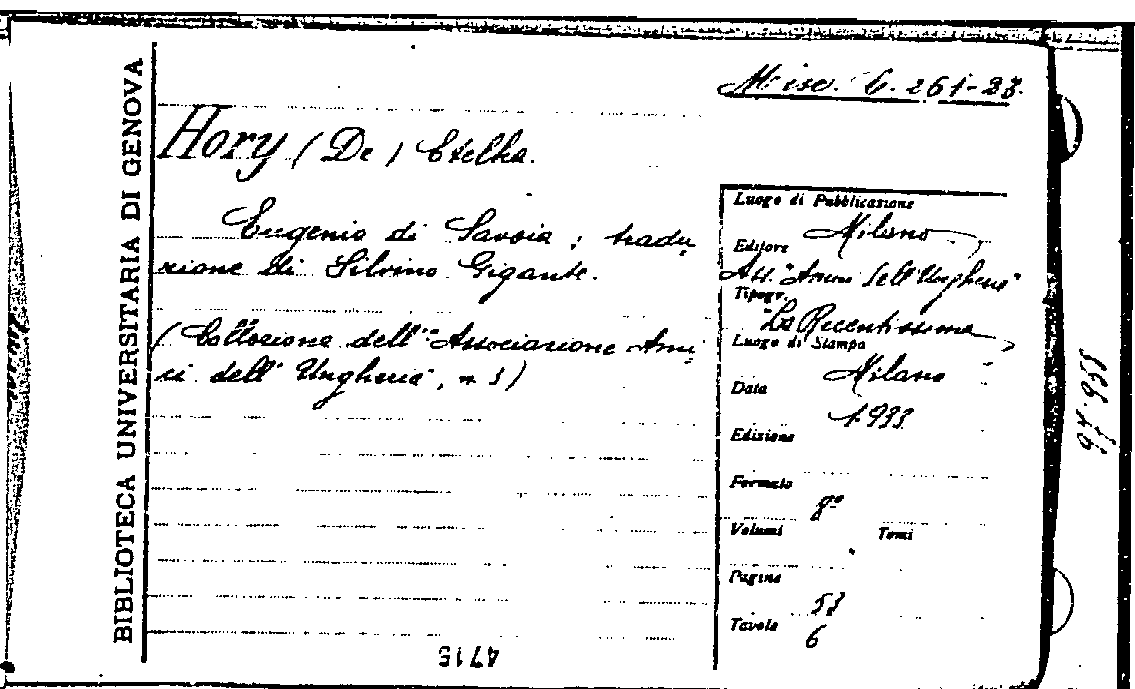 BIBLIOTECA UNIVERSITARIA DI GENOVA
Misc. G. 261-23.
Hory (De) Etelka.
Eugenio di Savoia; tradu-
zione di Silvino Gigante.
(Collezione dell'"Associazione Ami-
ci dell'Ungheria", n. 3)
Luogo di Pubblicazione
Milano
Editore
Ass. "Amici dell'Ungheria"
Tipogr.
"La Recentissima"
Luogo di Stampa
Milano
Data
1933
Edizione
Formato
8º
Volumi Tomi
Pagine
53
Tavole
6
4715